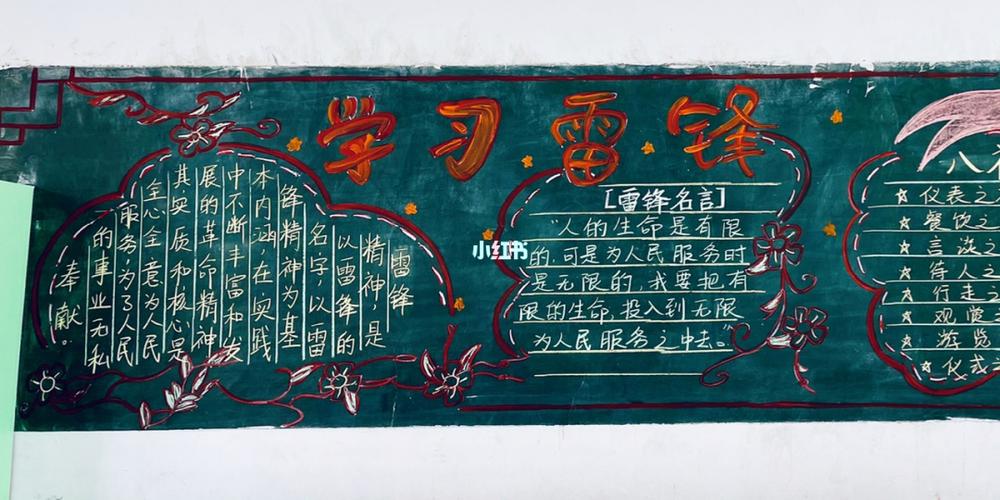 学习雷锋
雷锋
精神，是
以雷锋的
名字，以雷
锋精神为基
本内涵，在实践
中不断丰富和发
展的革命精神
其实质和核心是
全心全意为人民
服务，为了人民
的事业无私
奉献。
[雷锋名言]
“人的生命是有限
的，可是为人民服务时
是无限的，我要把有
限的生命，投入到无限
为人民服务之中去。”
小红书
八
☆仪表之
☆餐饮之
☆言谈之
☆待人之
☆行走之
☆观
☆游览
☆仪式之